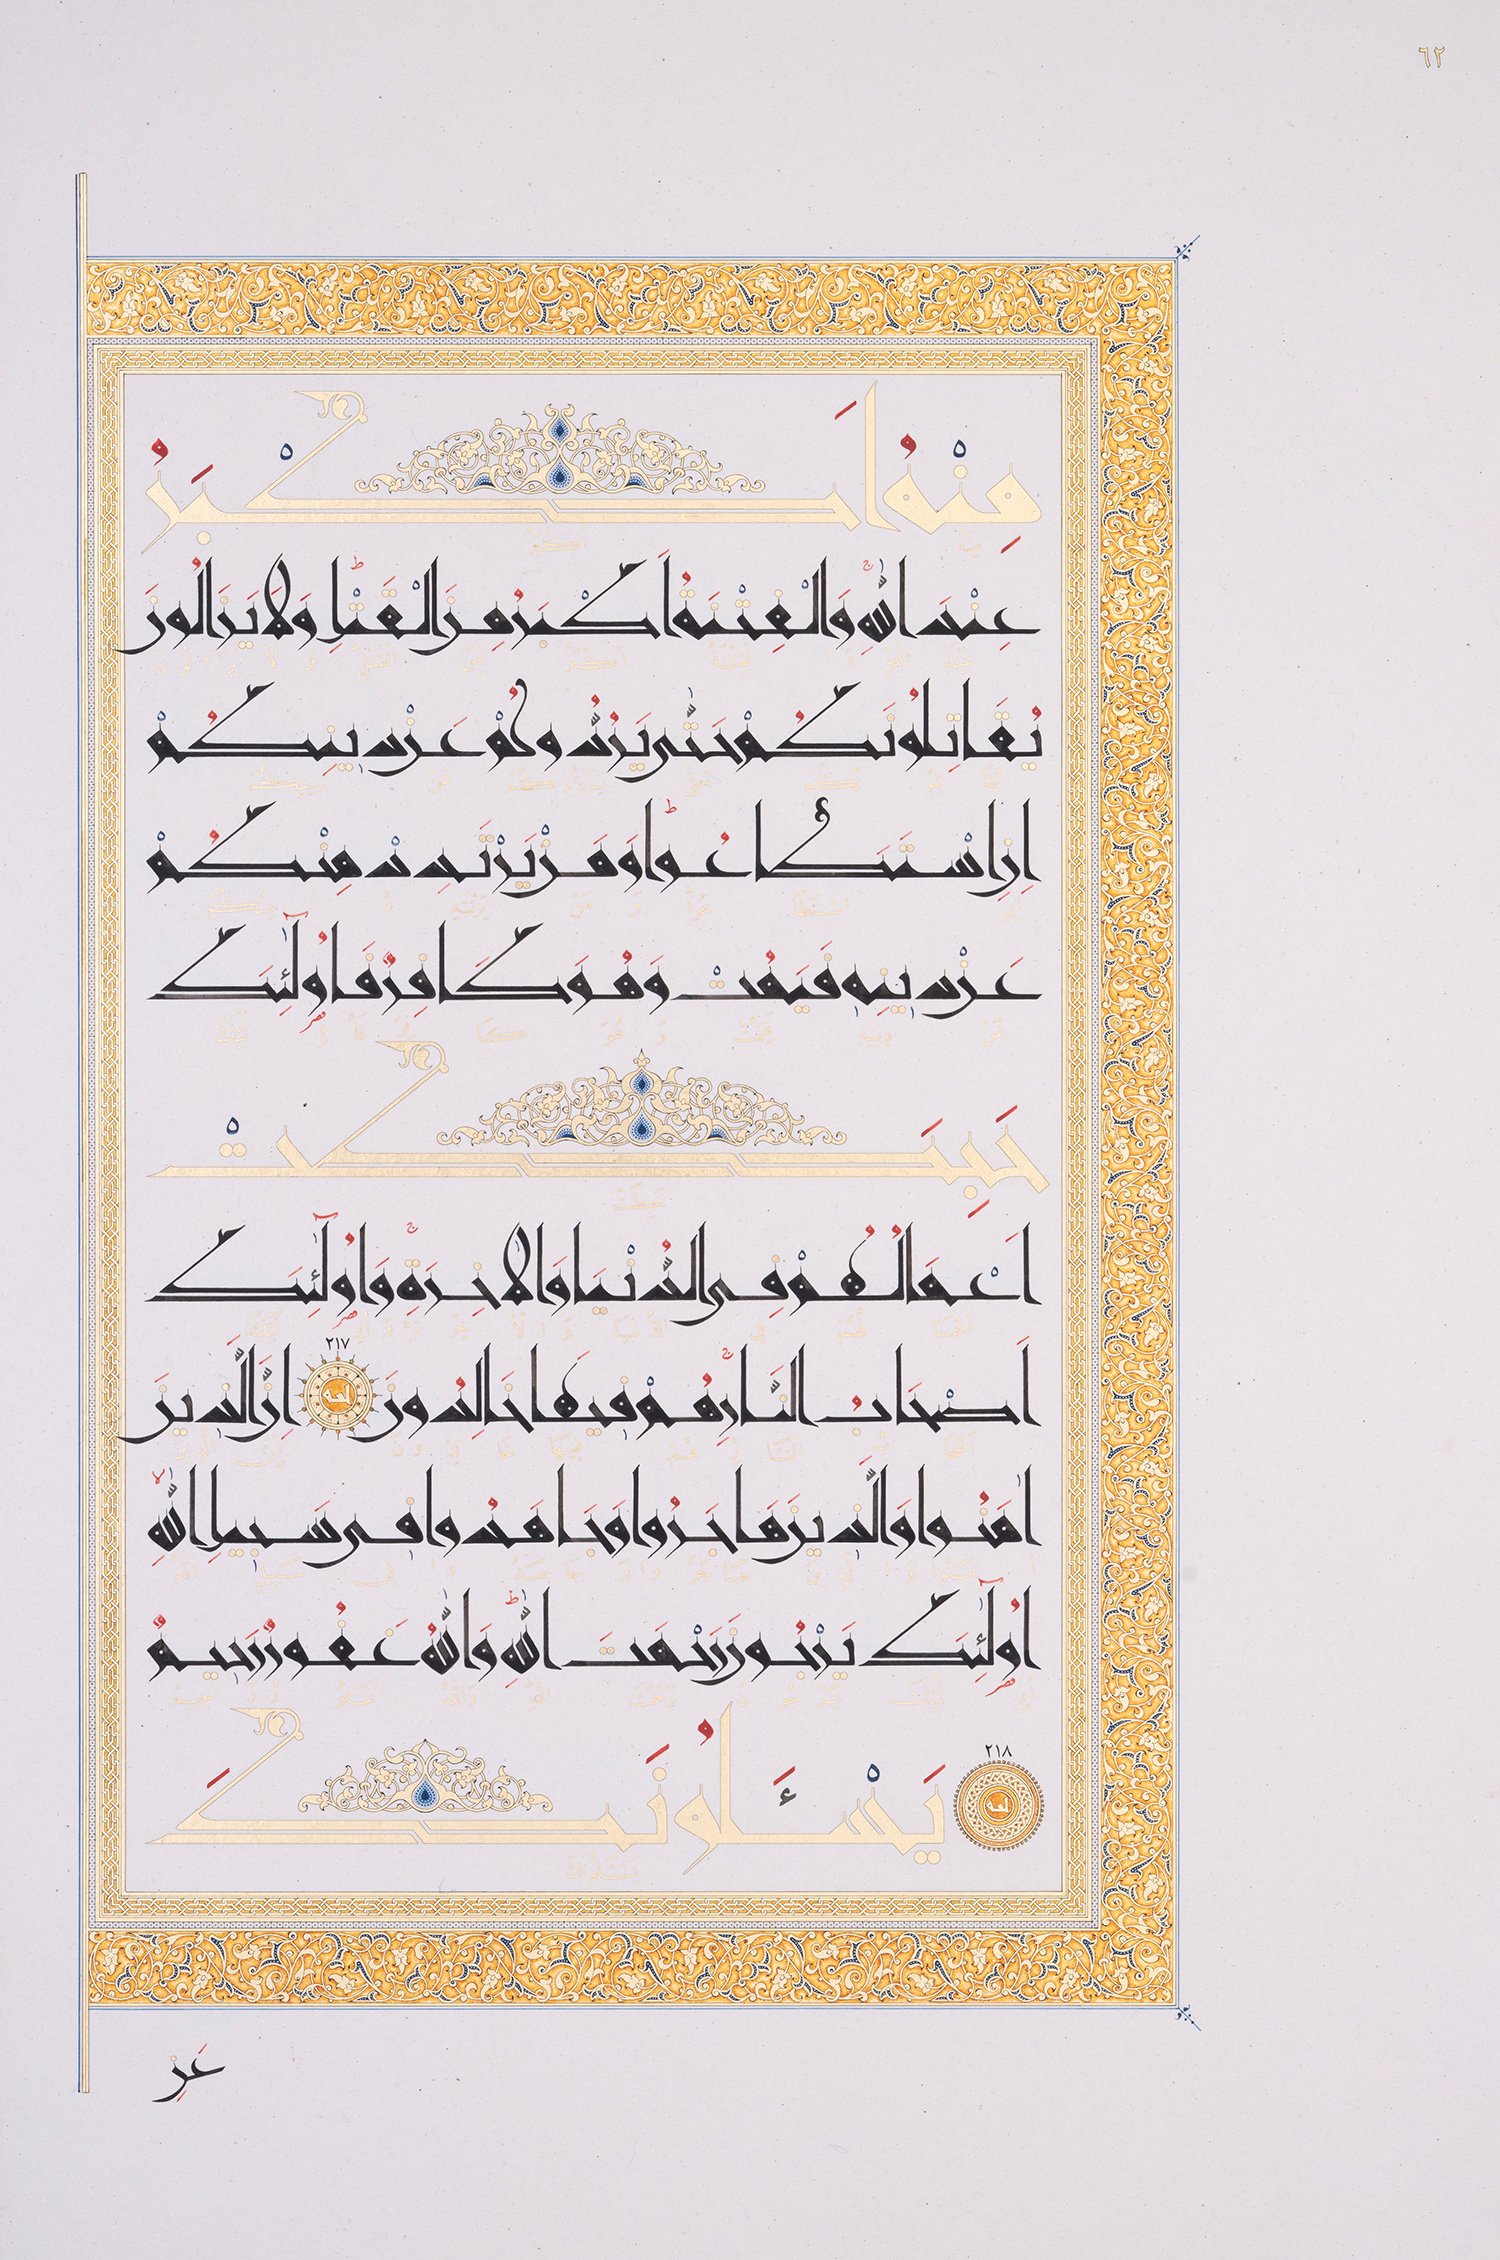 ٦٢
مِنْهُ أَكْبَرُ
عِنْدَ اللّٰهِ ۚ وَالْفِتْنَةُ أَكْبَرُ مِنَ الْقَتْلِ ۗ وَلَا يَزَالُونَ
يُقَاتِلُونَكُمْ حَتّٰى يَرُدُّوكُمْ عَنْ دِينِكُمْ
إِنِ اسْتَطَاعُوا ۚ وَمَنْ يَرْتَدِدْ مِنْكُمْ
عَنْ دِينِهِ فَيَمُتْ وَهُوَ كَافِرٌ فَأُولٰٓئِكَ
حَبِطَتْ
أَعْمَالُهُمْ فِي الدُّنْيَا وَالْآخِرَةِ ۚ وَأُولٰٓئِكَ
أَصْحَابُ النَّارِ ۚ هُمْ فِيهَا خَالِدُونَ ٢١٧ إِنَّ الَّذِينَ
اٰمَنُوا وَالَّذِينَ هَاجَرُوا وَجَاهَدُوا فِي سَبِيلِ اللّٰهِ ۙ
أُولٰٓئِكَ يَرْجُونَ رَحْمَتَ اللّٰهِ ۗ وَاللّٰهُ غَفُورٌ رَحِيمٌ
٢١٨ يَسْـَٔلُونَكَ
عَنِ